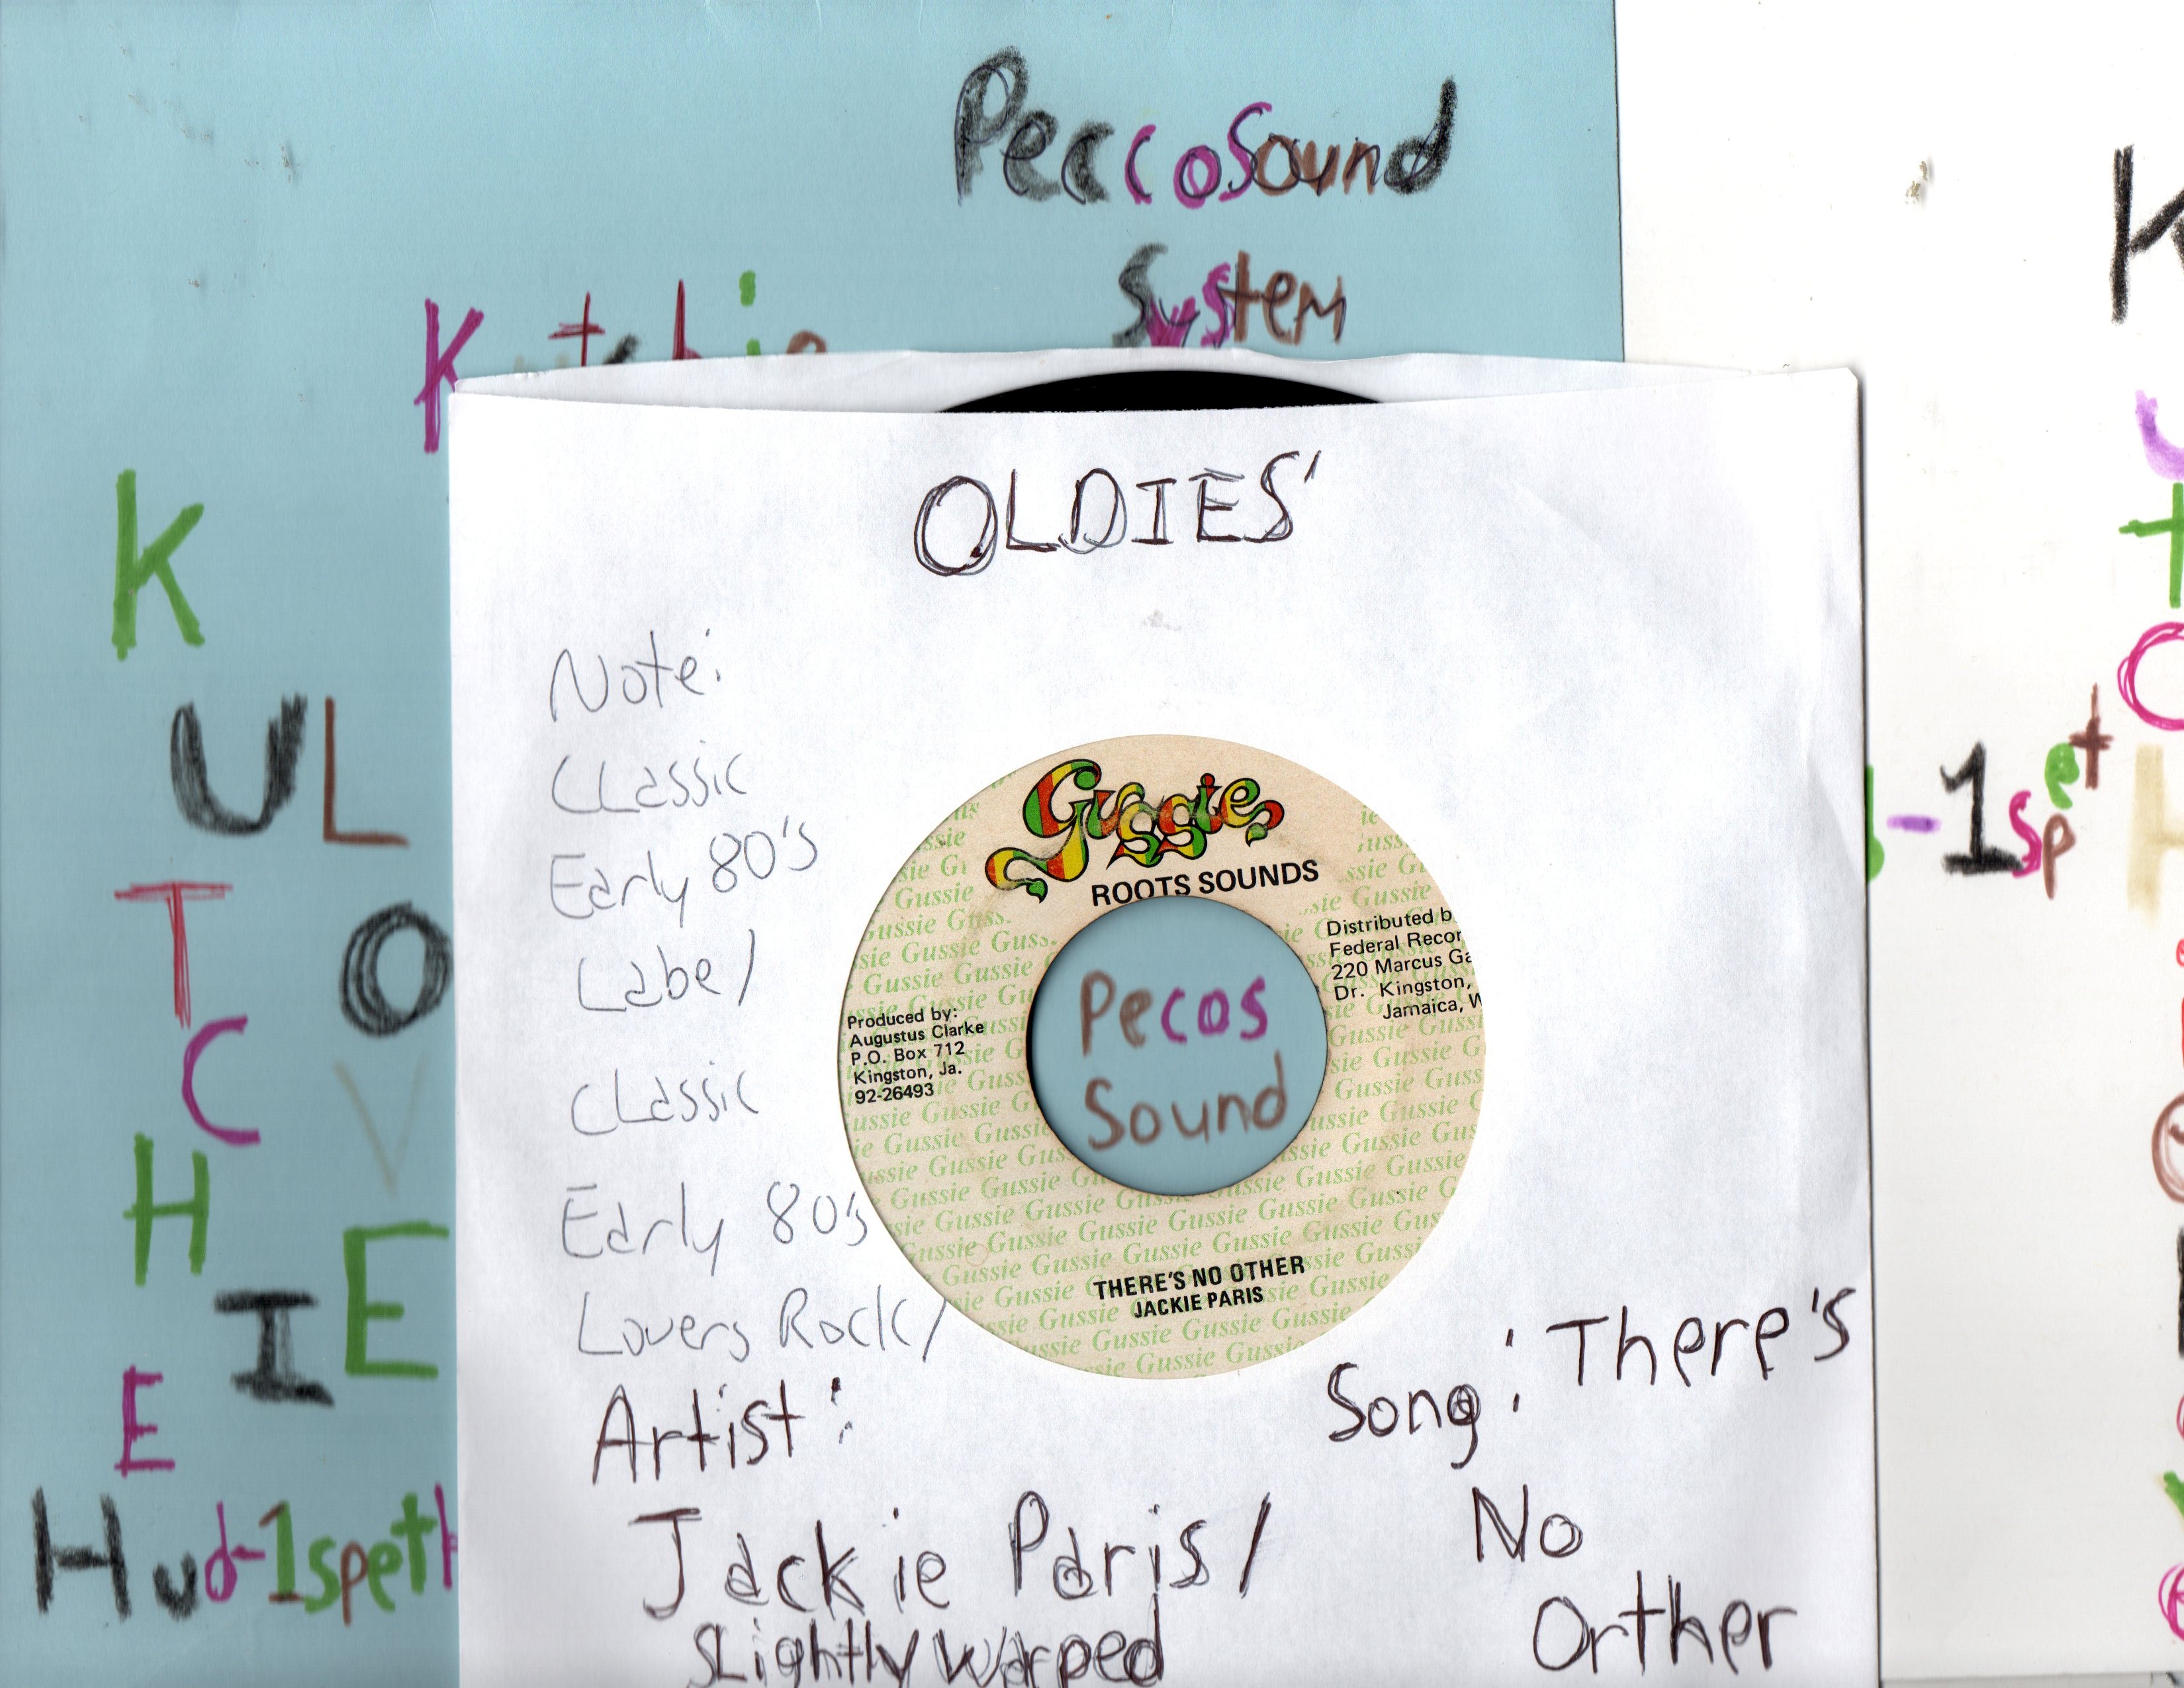 PeccoSound
System
K
OLDIES'
Note:
Classic
Early 80's
Label
Classic
Early 80's
Lovers Rock/
Artist:
Jackie Paris/
Slightly Warped
Song: There's
No
Orther
Gussie
ROOTS SOUNDS
Distributed b
Federal Recor
220 Marcus Ga
Dr. Kingston,
Jamaica, W
Produced by:
Augustus Clarke
P.O. Box 712
Kingston, Ja.
92-26493
Pecos
Sound
THERE'S NO OTHER
JACKIE PARIS
K
U
T
C
H
I
E
L
O
V
E
Hud-1speth
-1spet